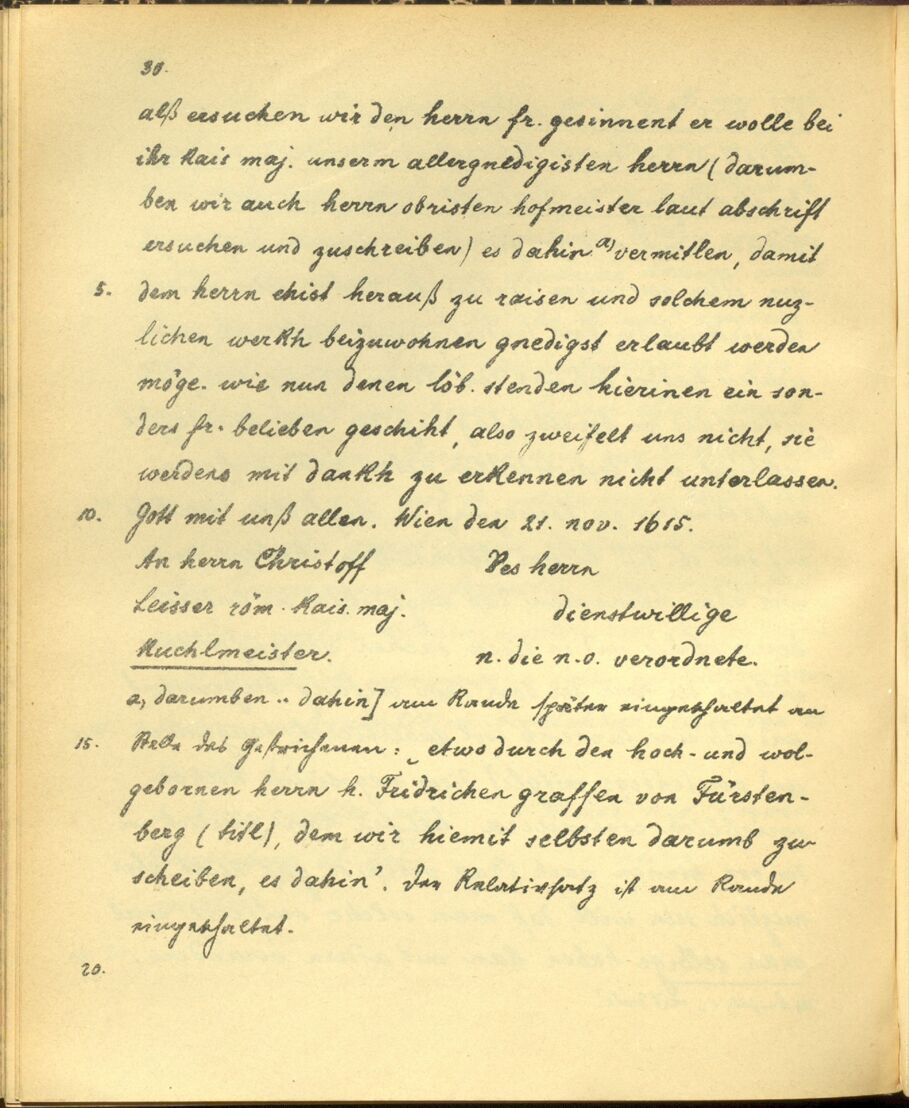 30.
alß ersuchen wir den herrn fr. gesinnent er wolle bei
ihr kais maj. unserm allergnedigisten herrn (darum-
ben wir auch herrn obristen hofmeister laut abschrift
ersuchen und zuschreiben) es dahin a) vermitlen, damit
5. dem herrn ehist herauß zu raisen und solchem nuz-
lichen werkh beizuwohnen gnedigst erlaubt werden
möge. wie nun denen löb. stenden hierinen ein son-
ders fr. belieben geschiht, also zweifelt uns nicht, sie
werdens mit dankh zu erkennen nicht unterlassen.
10. Gott mit unß allen. Wien den 21. nov. 1615.
An herrn Christoff Des herrn
Leisser röm. kais. maj. dienstwillige
Kuchlmeister. n. die n.ö. verordnete.
a, darumben .. dahin] am Rande später eingeschaltet an
15. Stelle des Gestrichenen: „etwo durch den hoch- und wol-
gebornen herrn h. Fridrichen graffen von Fürsten-
berg (titl), dem wir hiemit selbsten darumb zu
scheiben, es dahin'. Der Relativsatz ist am Rande
eingeschaltet.
20.